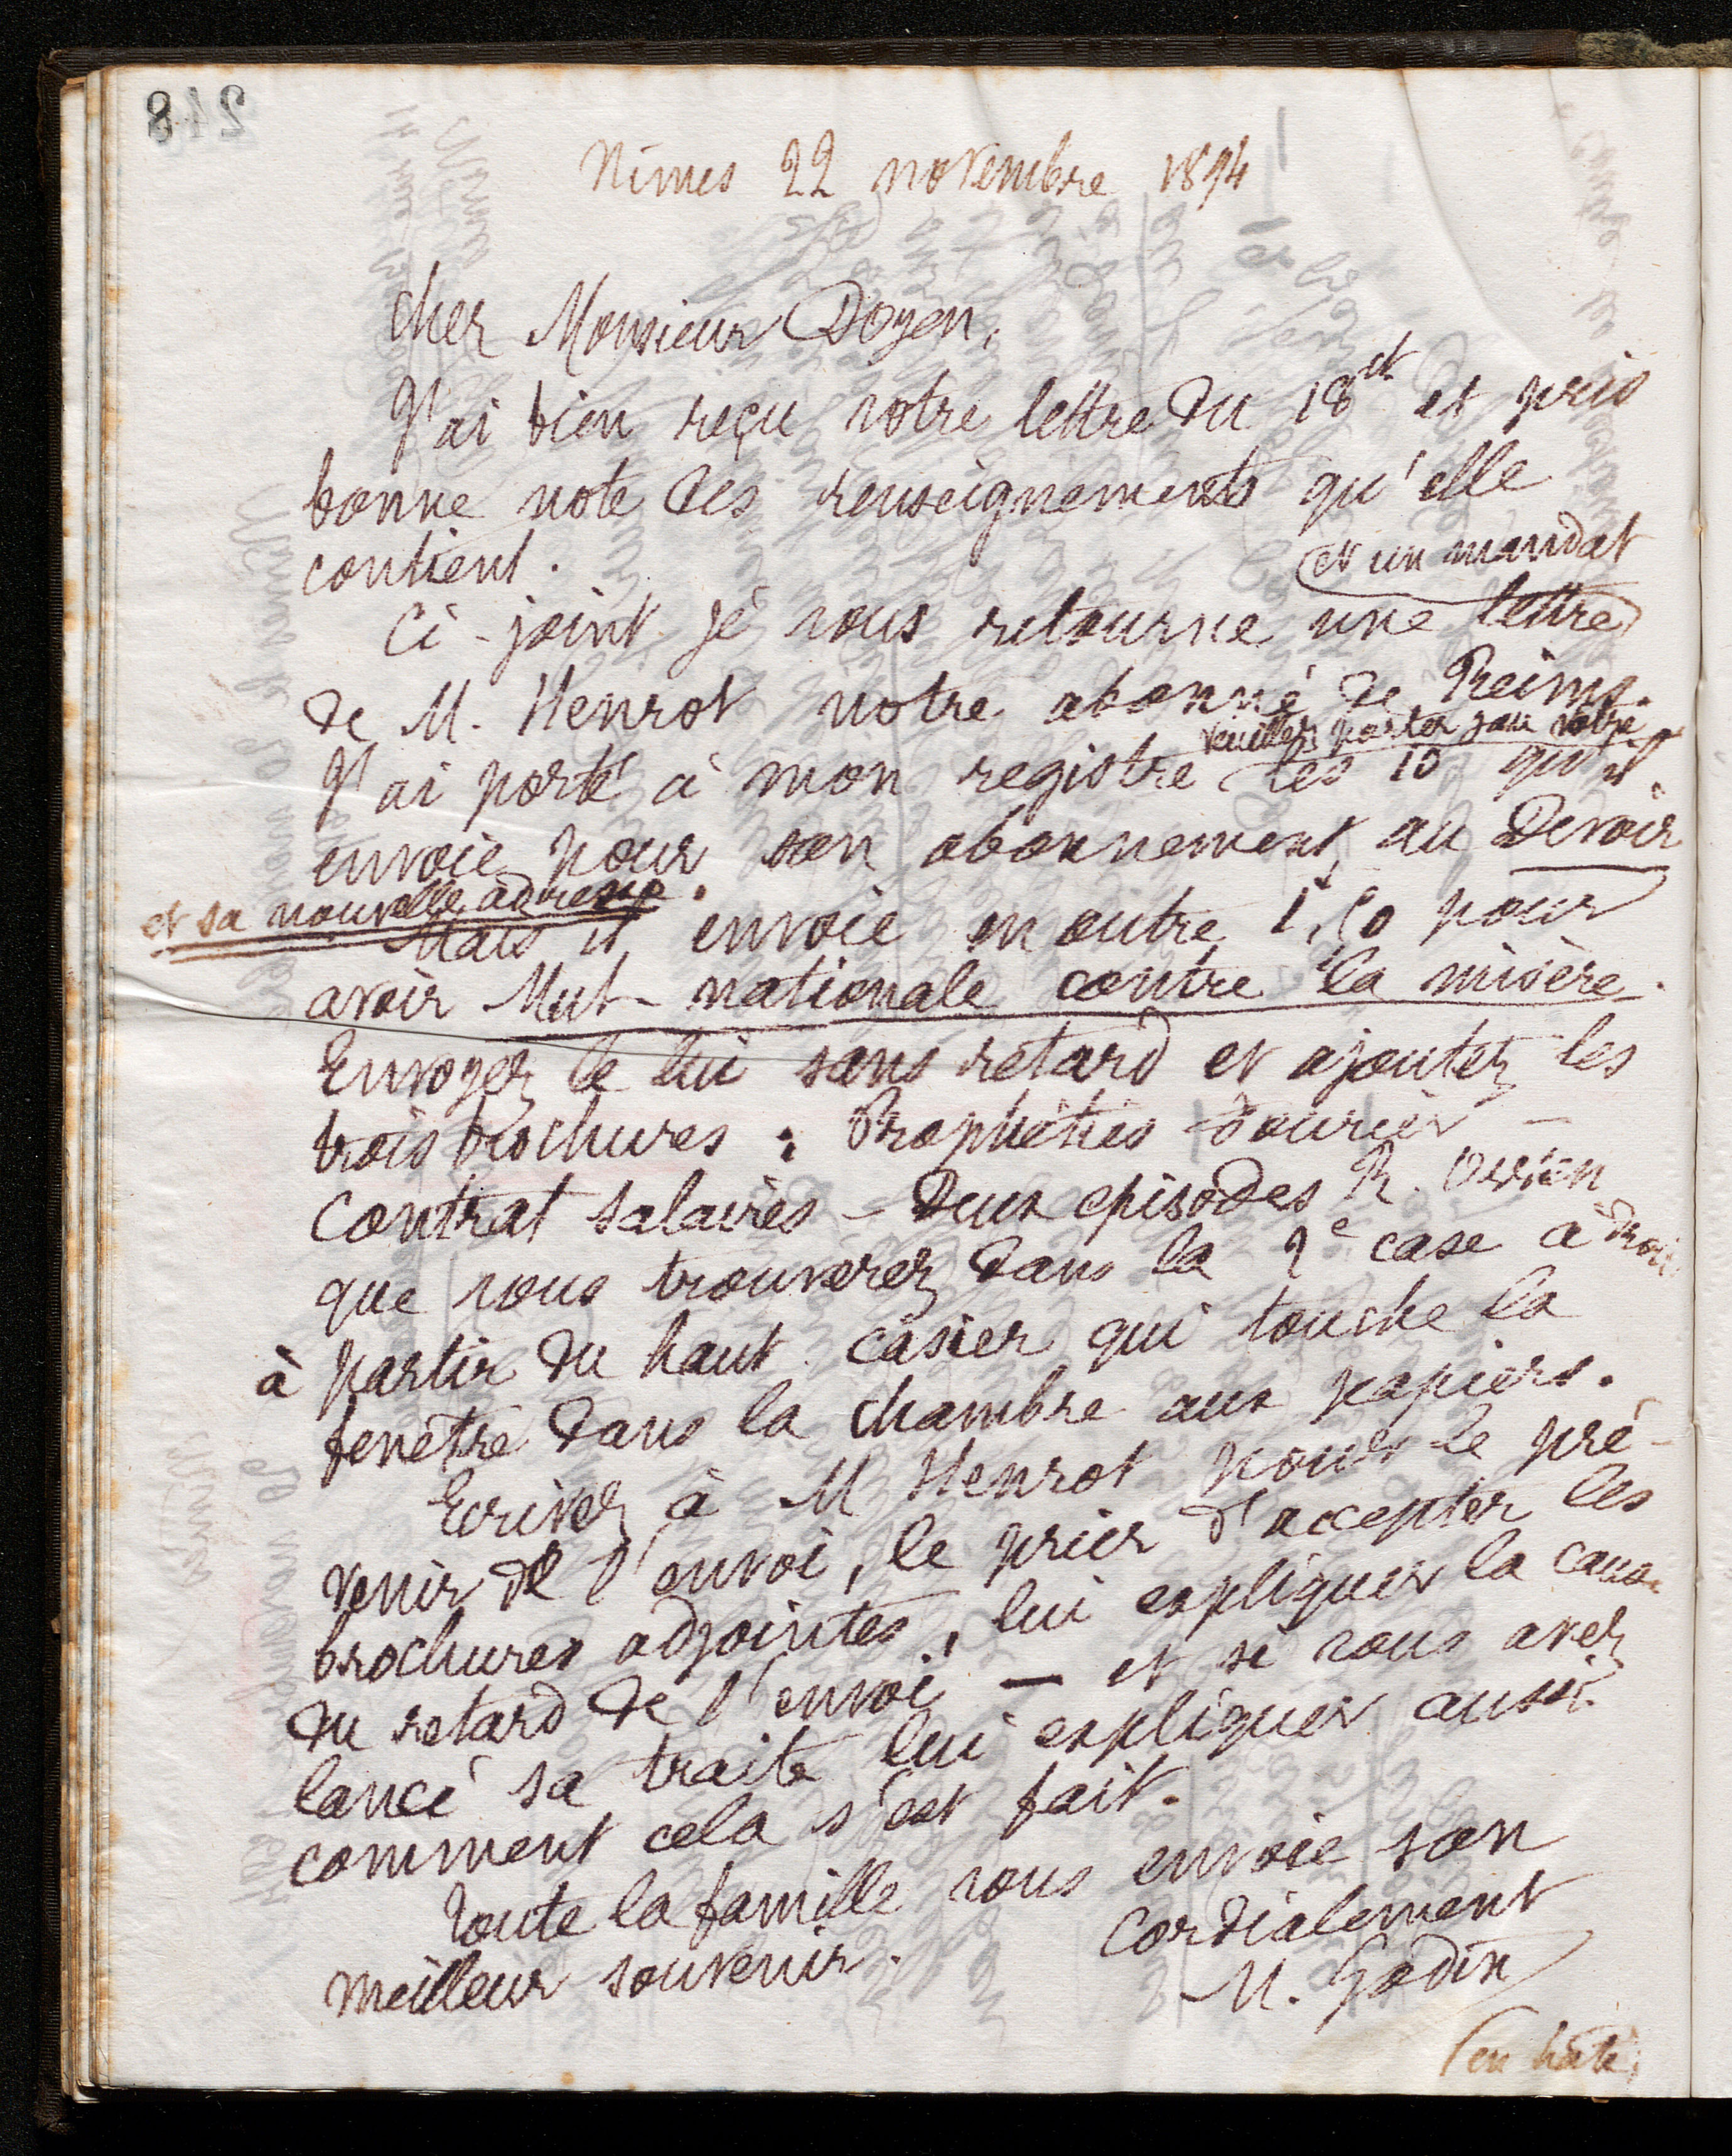 248
Nîmes 22 novembre 1894
Cher Monsieur Doyen,
J'ai bien reçu votre lettre du 18 ct et pris
bonne note des renseignements qu'elle
contient.
et un mandat
Ci-joint je vous retourne une lettre
de M. Henrot notre abonné de Reims.
veuillez porter sur votre
J'ai porté à mon registre les 10 qu'il
envoie pour son abonnement au Devoir
et sa nouvelle adresse.
Mais il envoie en outre 1,50 pour
avoir Mut- nationale contre la misère.
Envoyez le lui sans retard et ajoutez les
trois brochures : Prophéties Fourier –
Contrat salaires – Deux episodes R. Owen
que vous trouverez dans la 2e case à droite
à partir du haut. casier qui touche la
fenêtre dans la chambre aux papiers.
Ecrivez à M Henrot pour le pré-
venir de l'envoi, le prier d'accepter les
brochures adjointes, lui expliquer la cause
du retard de l'envoi – et si vous avez
lancé sa traite lui expliquer aussi
comment cela s'est fait.
Toute la famille vous envoie son
meilleur souvenir.
Cordialement
M. Godin
(en hâte)